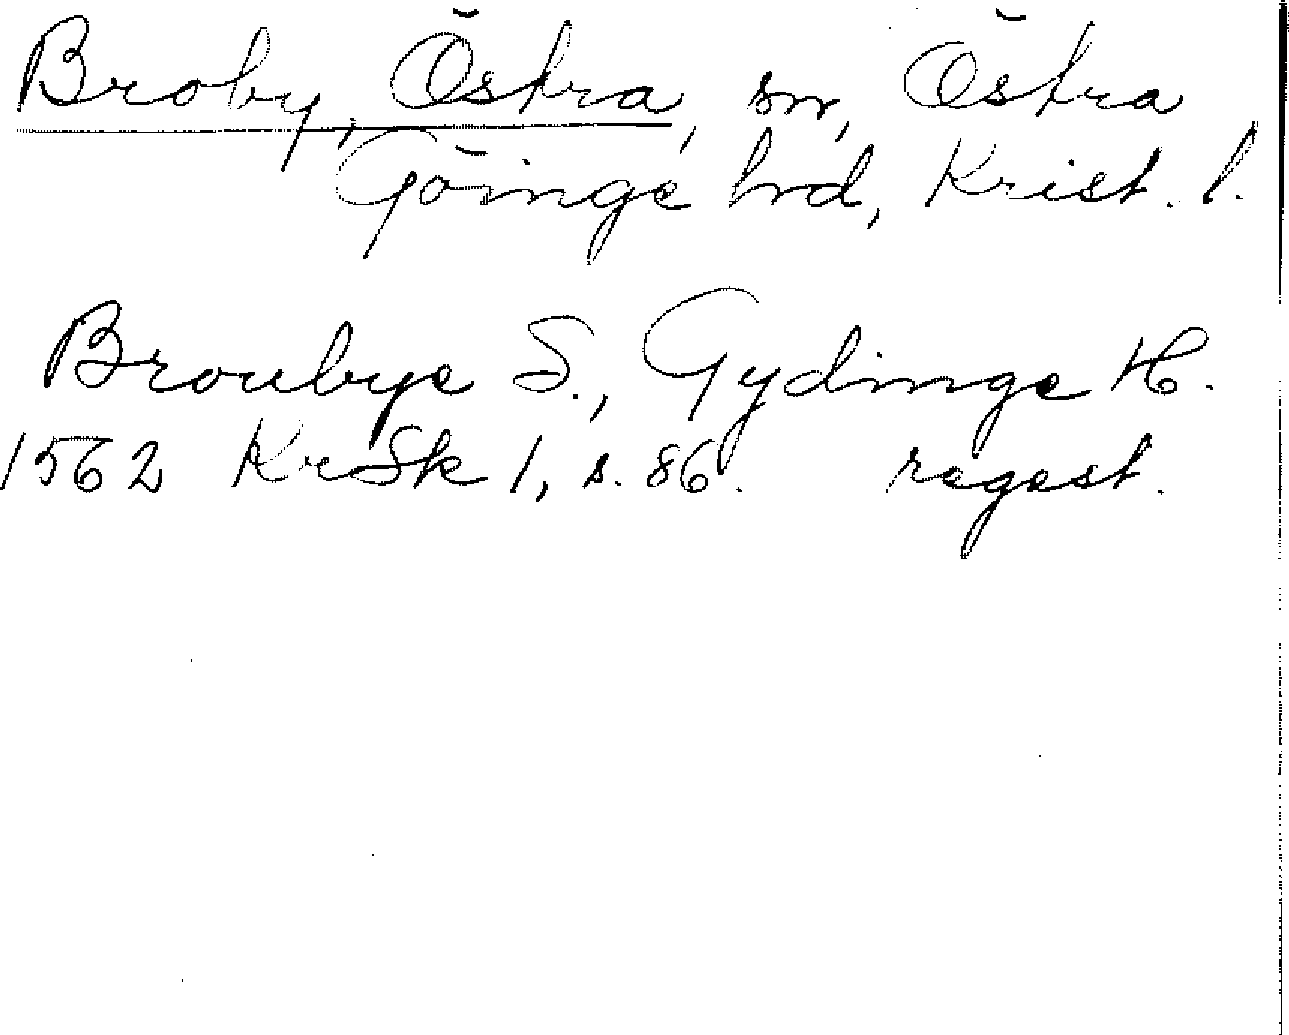 Broby, Östra, sn, Östra
Göinge hrd, Krist. l.
Broubye S., Gydinge H.
1562 KrSk 1, s. 86. regest.